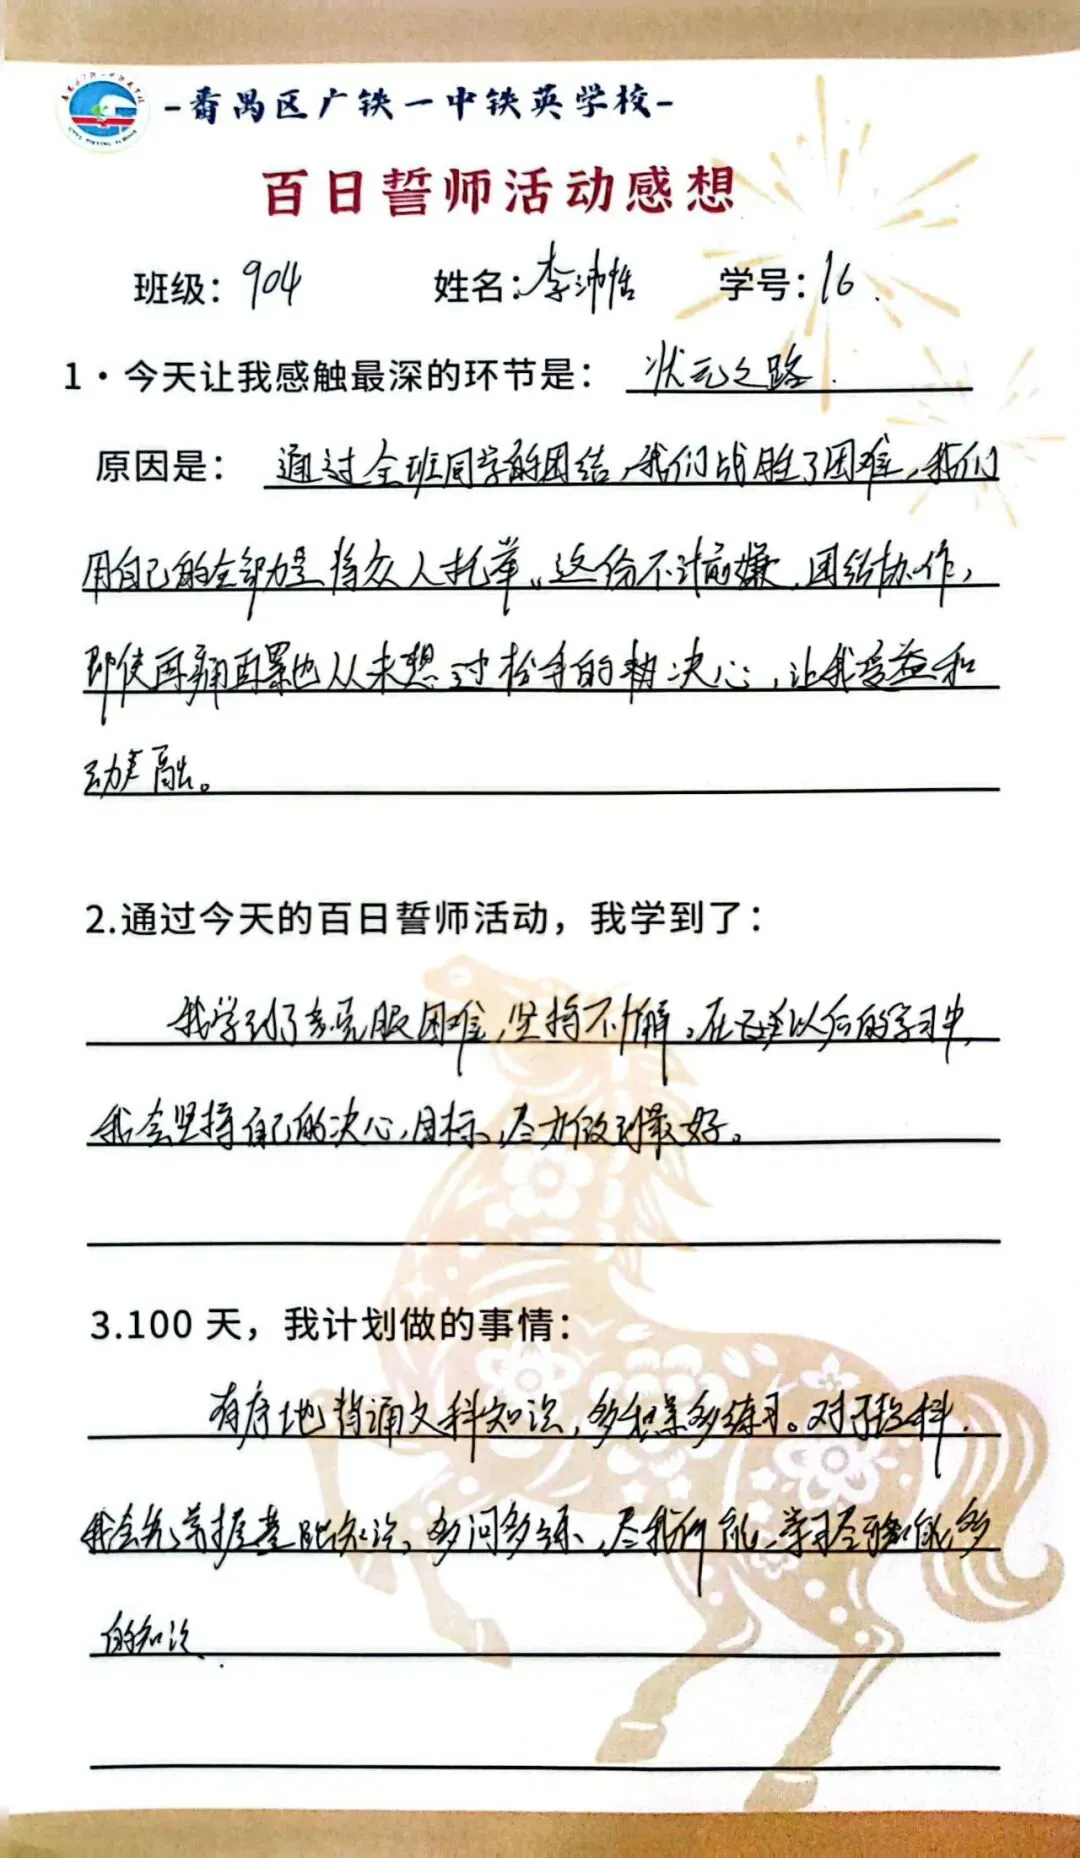 -番禺区广铁一中铁英学校-
百日誓师活动感想
班级：904 姓名：李沛恬 学号：16.
1·今天让我感触最深的环节是：状元之路.
原因是：通过全班同学的团结，我们战胜了困难，我们
用自己的全部力量将众人托举。这份不计前嫌、团结协作，
即使再痛再累也从未想过松手的决心，让我受益和
动容。
2.通过今天的百日誓师活动，我学到了：
我学到了克服困难，坚持不懈。在以后的学习中，
我会坚持自己的决心、目标、尽力做到最好。
3.100 天，我计划做的事情：
有序地背诵文科知识，多积累多练习。对于理科.
我会先掌握基础知识，多问多练、尽我所能、学习尽可能多
的知识.